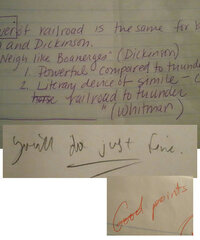 ver of railroad is the same for
and Dickinson.
Neigh like Boanerges" (Dickinson)
1. Powerful compared to thunder
2. Literary device of simile -
horse railroad to thunder
" (Whitman)
you'll do just fine.
Good points